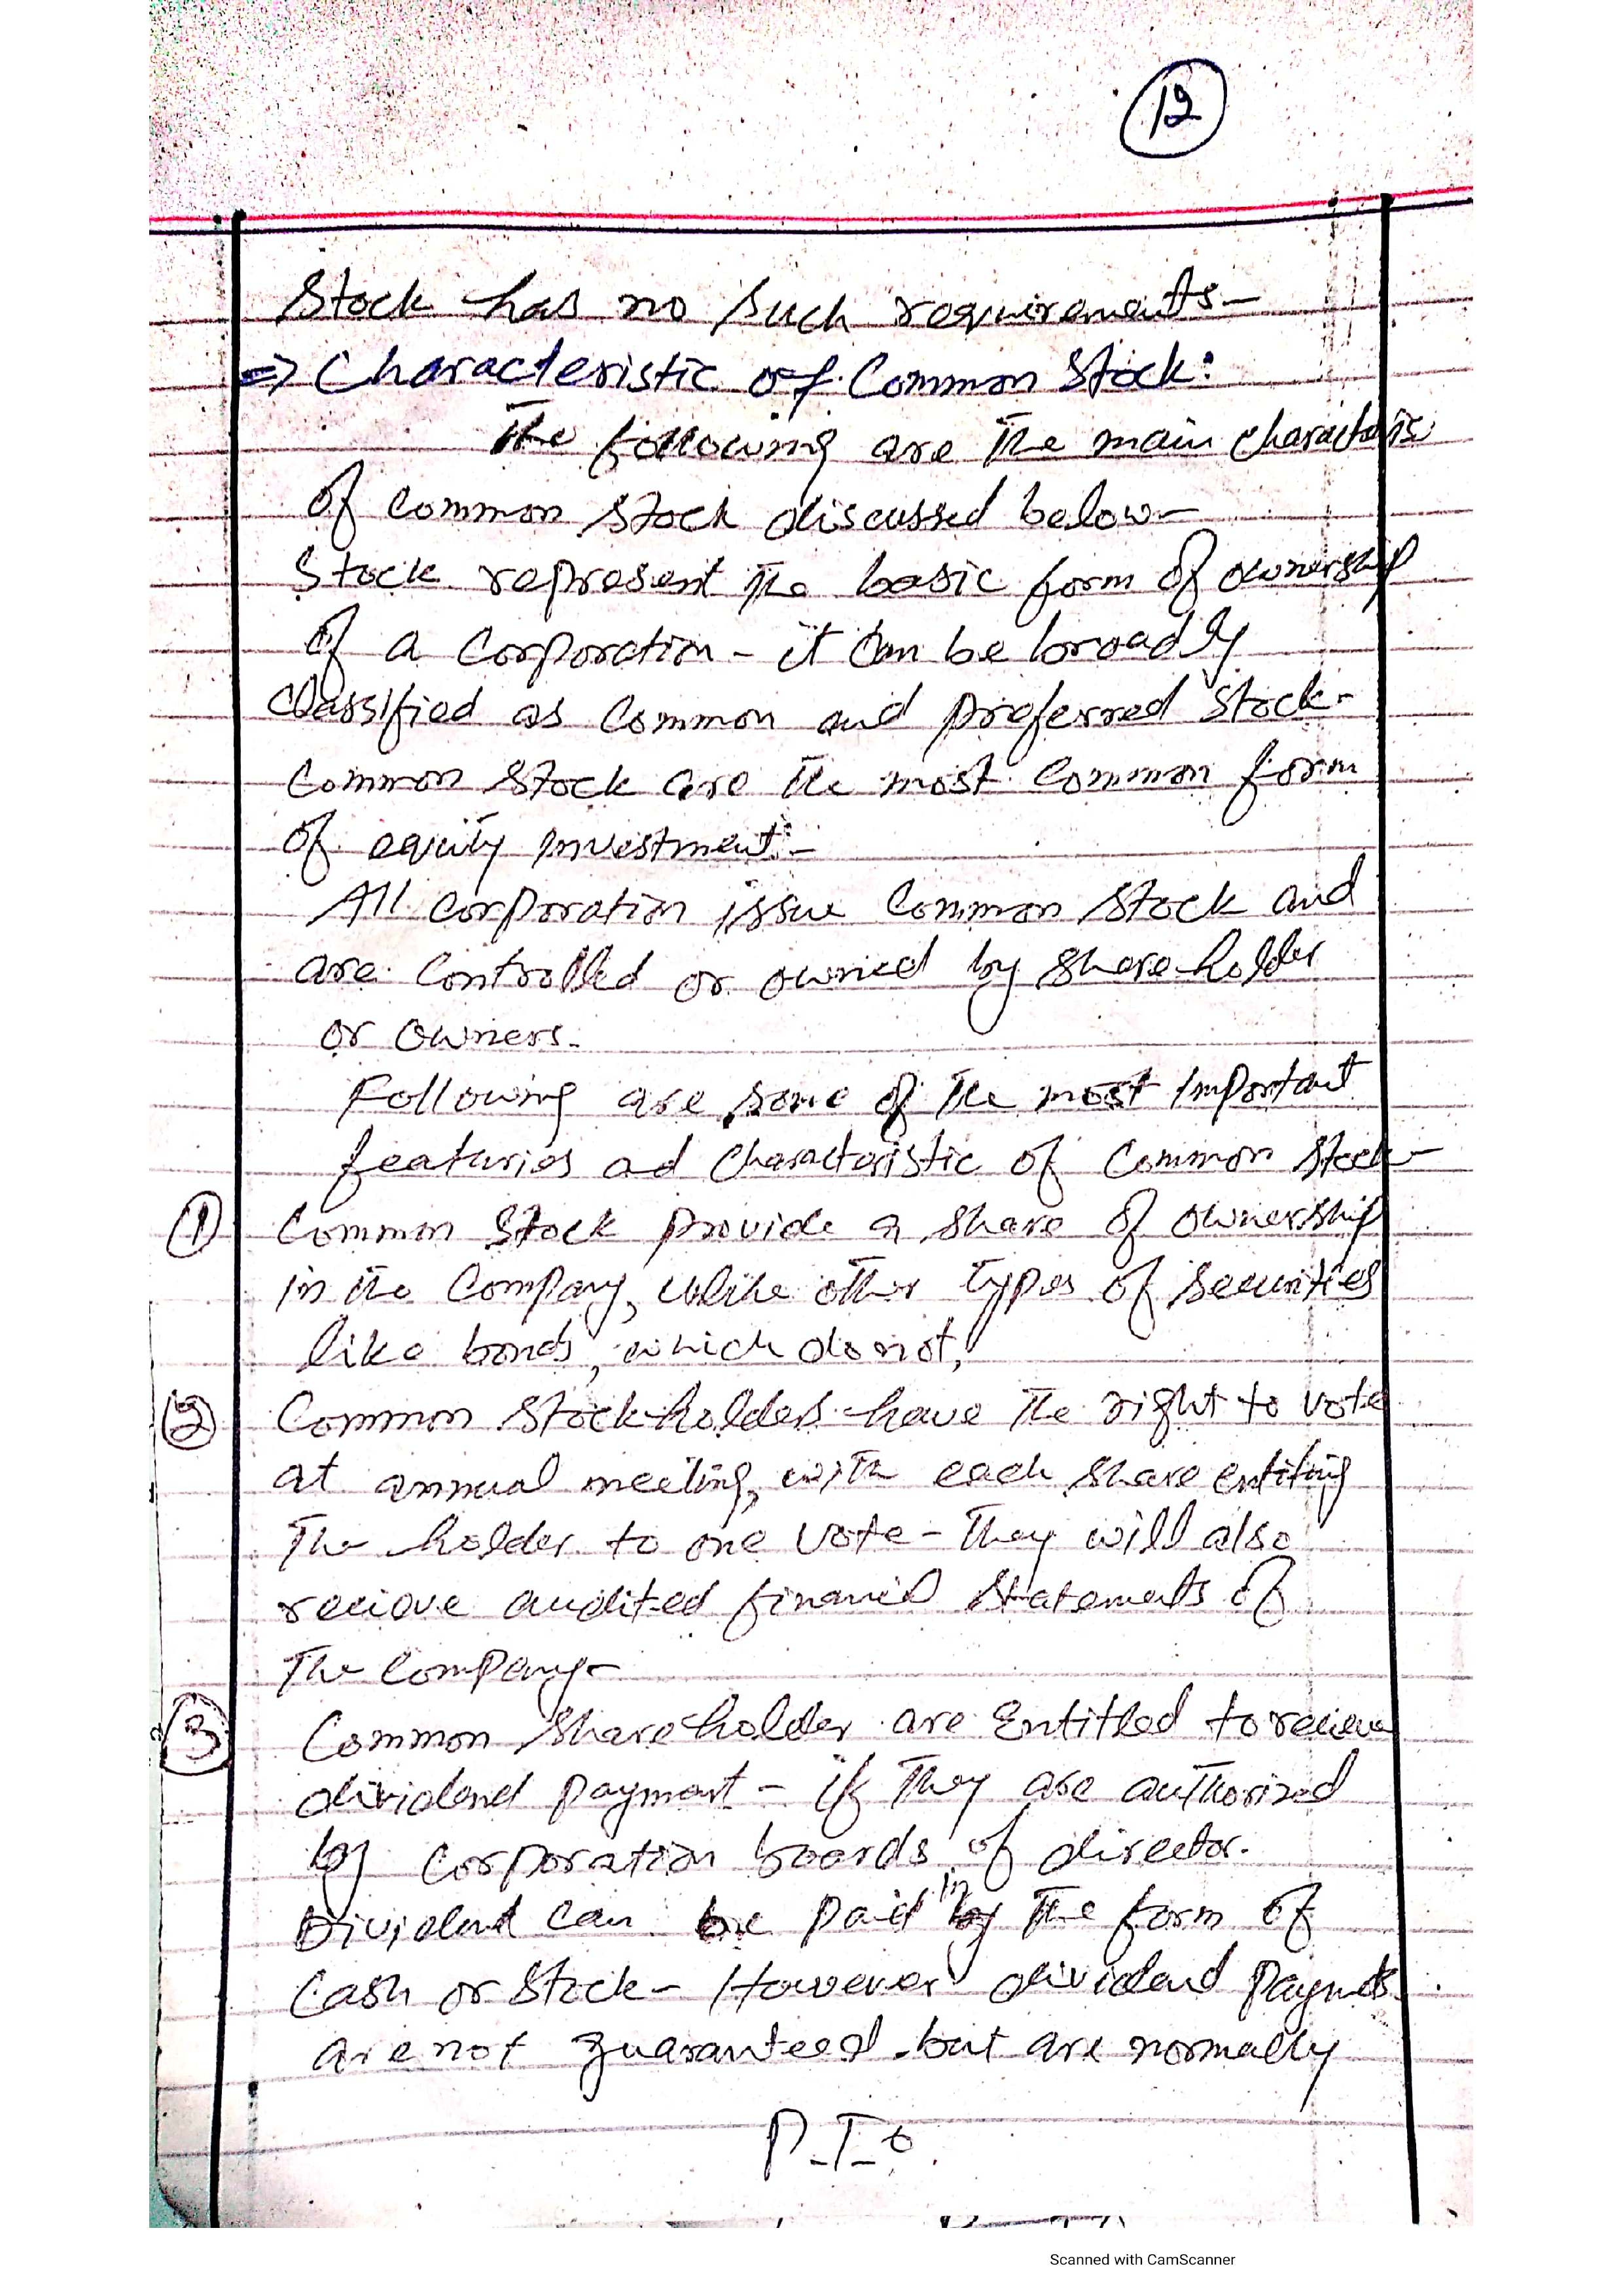 12
Stock has no such requirements-
=> Characteristic of Common Stock:
The following are the main charactaris
of common stock discussed below-
Stock represent the basic form of ownership
of a corporation - it can be broadly
classified as common and preferred stock-
Common stock are the most common form
of equity investment-
All corporation issue common stock and
are controlled or owned by shareholder
or owners.
Following are some of the most important
featuries ad characteristic of common stock-
① Common stock provide a share of ownership
in the company, unlike other types of securities
like bonds, which do not.
② Common stockholders have the right to vote
at annual meeting, with each share entiting
The holder to one vote - They will also
recieve audited financial statements of
The company-
③ Common shareholder are Entitled to recieve
dividend payment - if They are authorized
by corporation boards of director.
Dividend can be paid in by the form of
Cash or Stock - However dividend payments
are not guaranteed but are normally
P.T.O.
Scanned with CamScanner